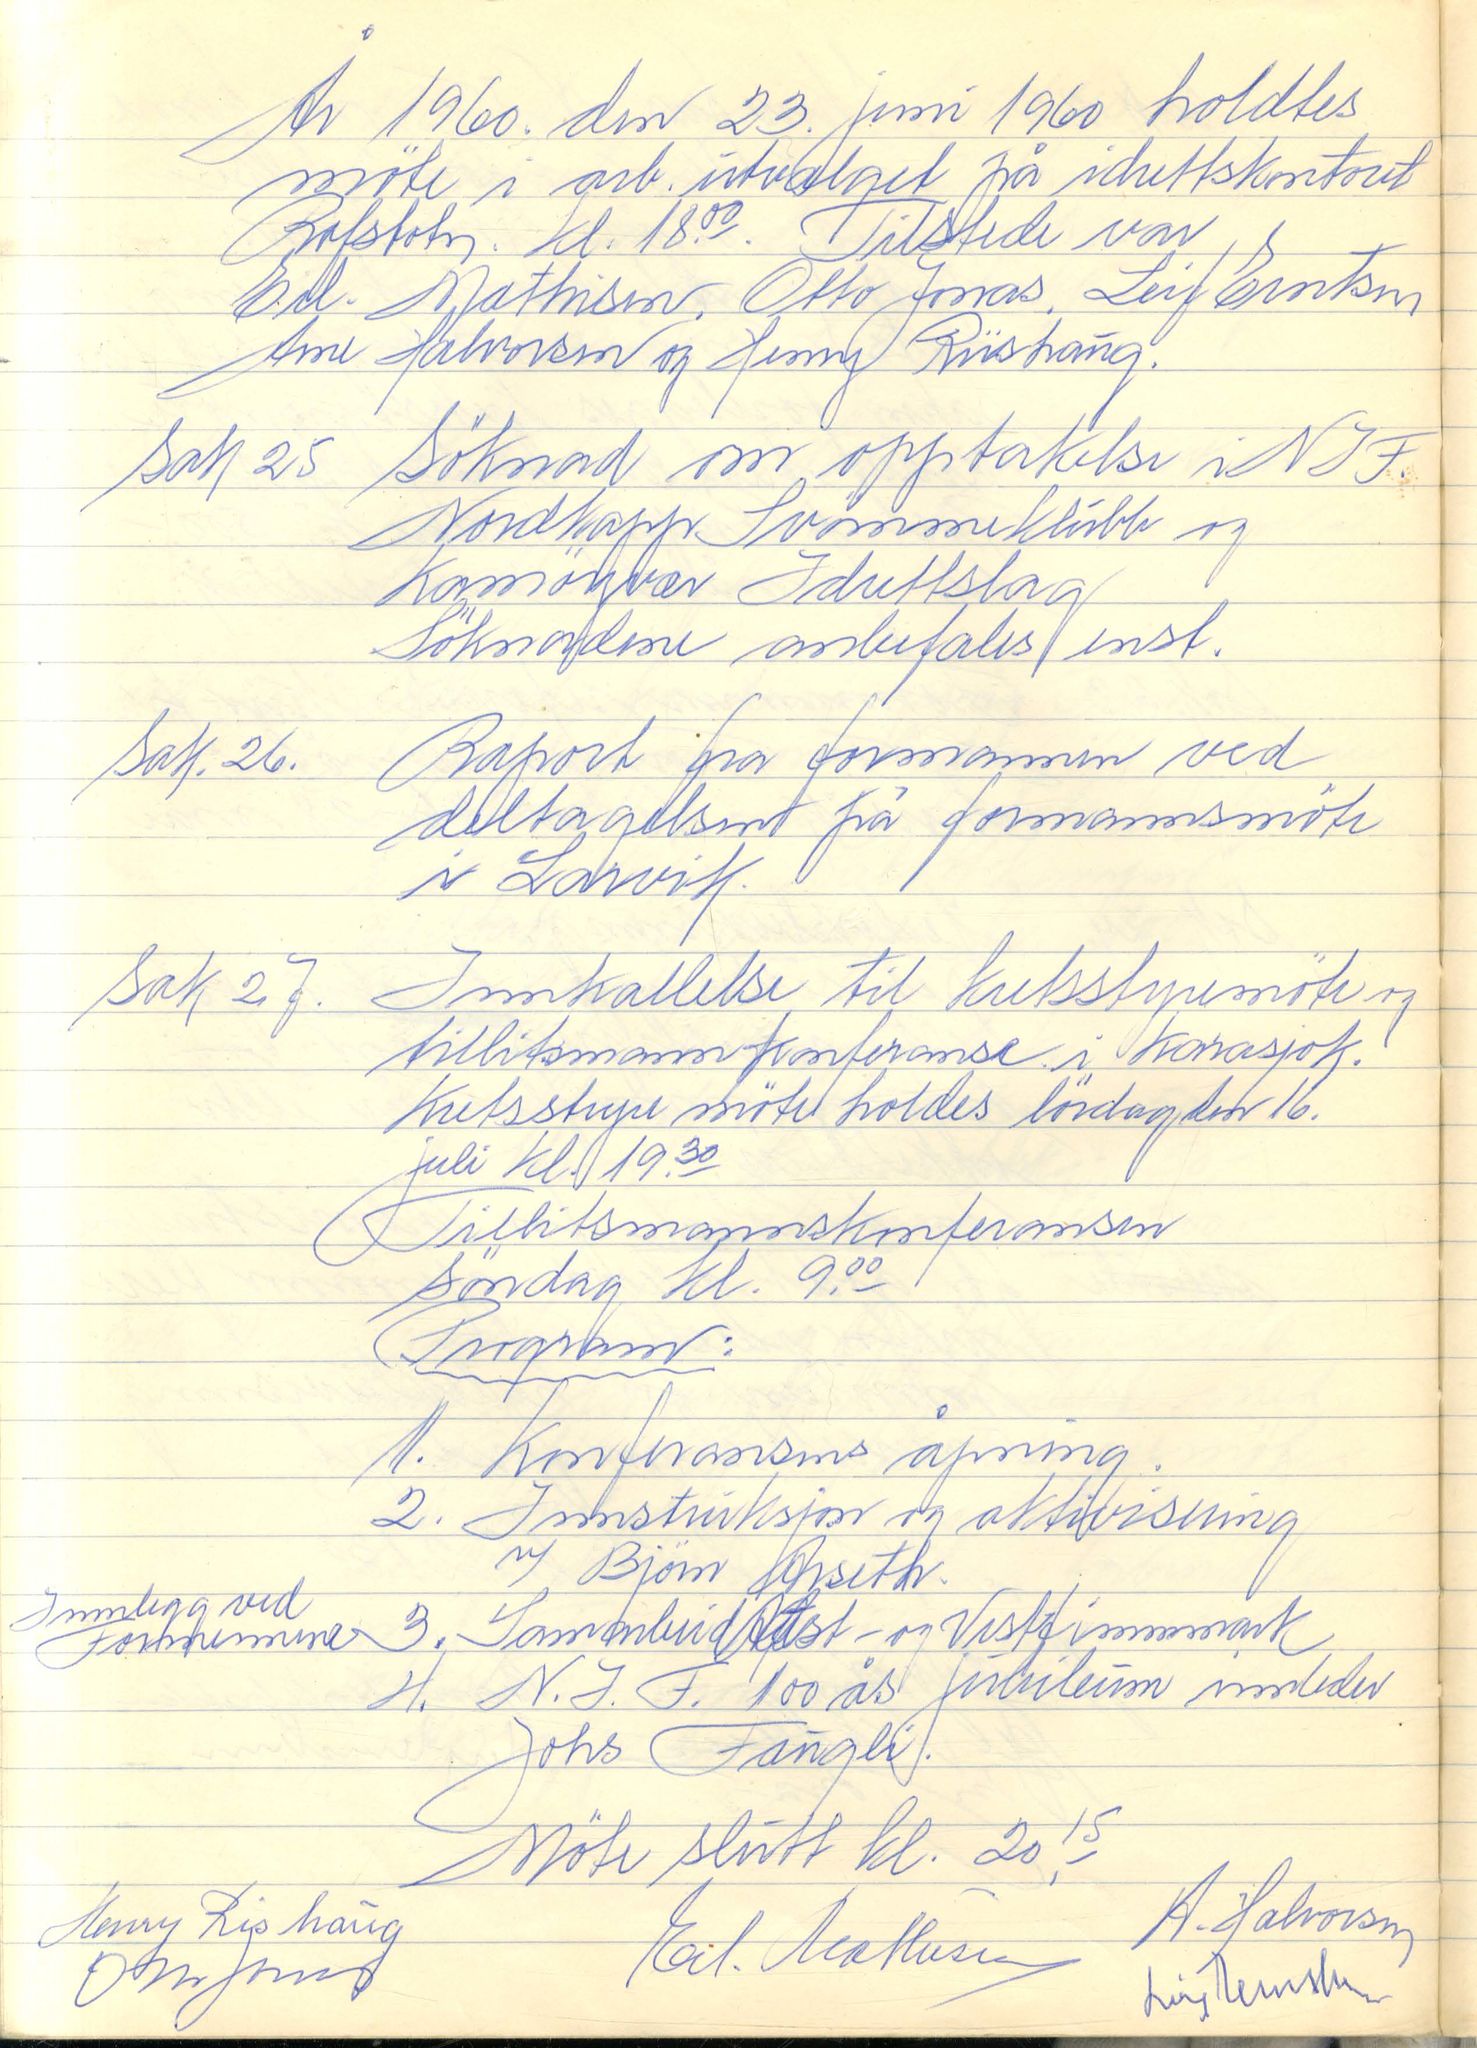 År 1960. den 23. juni 1960 holdtes
möte i arb. utvalget på idrettskontoret
kl. 18.00. Tilstede var
Eil. Mathisen, Otto Jonas, Leif Erntsen
Arne Halvorsen og Henry Riishaug.
Sak 25 Söknad om opptakelse i N I F.
Nordkapp Svömmeklubb og
Kamöyvær Idrettslag
Söknadene anbefales enst.
Sak. 26. Raport fra formannen ved
deltagelsen på formannsmöte
i Larvik.
Sak 27. Innkallelse til kretsstyremöte og
tillitsmannkonferanse i Karasjok.
Kretsstyre möte holdes lördag den 16.
juli kl. 19.30
Tillitsmannskonferansen
Söndag kl. 9.00
Program:
1. Konferansens åpning.
2. Innstruksjon og aktivisering
v/ Björn
Innlegg ved
Formennene 3. Samarbeid Öst- og Vestfinnmark
4. N. I. F. 100 års jubileum innleder
Johs Fangli.
Möte slutt kl. 20.15
Henry Rishaug
Otto Jonas
Eil. Mathisen
A. Halvorsen
Leif Erntsen